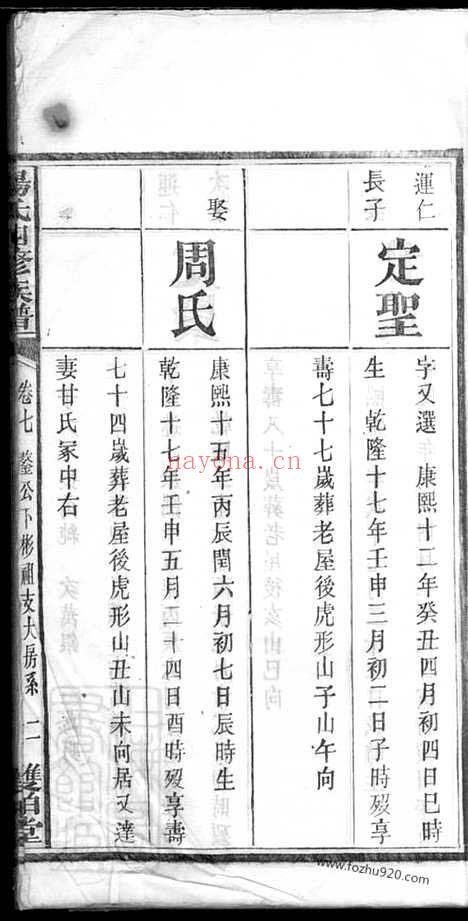 運仁
長子
定聖
字又選 康熙十二年癸丑四月初四日巳時
生 乾隆十七年壬申三月初二日子時歿享
壽七十七歲葬老屋後虎形山子山午向
娶
周氏
康熙十五年丙辰閏六月初七日辰時生
乾隆十七年壬申五月二十四日酉時歿享壽
七十四歲葬老屋後虎形山丑山未向居又達
妻甘氏冢中右
氏四修族譜
卷七 公下彬祖支大房系 二
雙 堂
nayona.cn
www.fozhu920.com